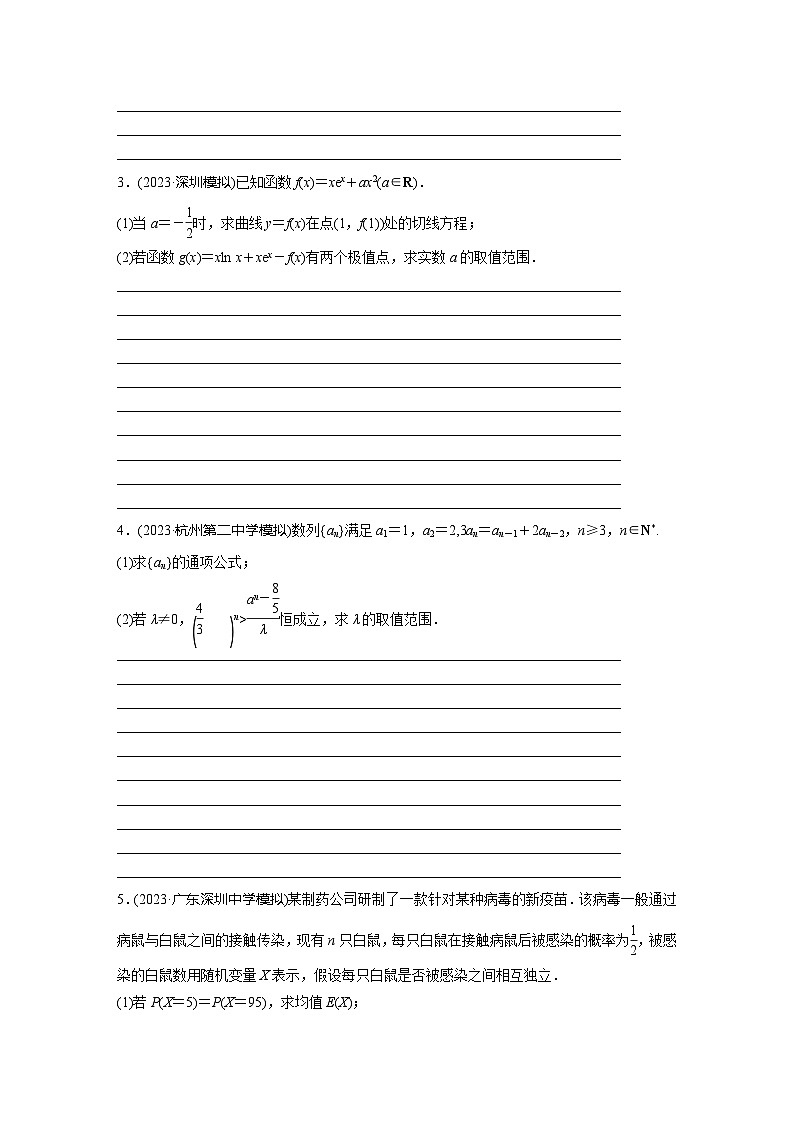 3．(2023·深圳模拟)已知函数 f(x)＝xeˣ＋ax²(a∈R)．
(1)当 a＝－1/2时，求曲线 y＝f(x)在点(1，f(1))处的切线方程；
(2)若函数 g(x)＝xln x＋xeˣ－f(x)有两个极值点，求实数 a 的取值范围．
4．(2023·杭州第二中学模拟)数列{aₙ}满足 a₁＝1，a₂＝2,3aₙ＝aₙ₋₁＋2aₙ₋₂，n≥3，n∈N*.
(1)求{aₙ}的通项公式；
(2)若 λ≠0，(4/3)ⁿ>(aⁿ－8/5)/λ恒成立，求 λ 的取值范围．
5．(2023·广东深圳中学模拟)某制药公司研制了一款针对某种病毒的新疫苗．该病毒一般通过
病鼠与白鼠之间的接触传染，现有 n 只白鼠，每只白鼠在接触病鼠后被感染的概率为1/2，被感
染的白鼠数用随机变量 X 表示，假设每只白鼠是否被感染之间相互独立．
(1)若 P(X＝5)＝P(X＝95)，求均值 E(X)；